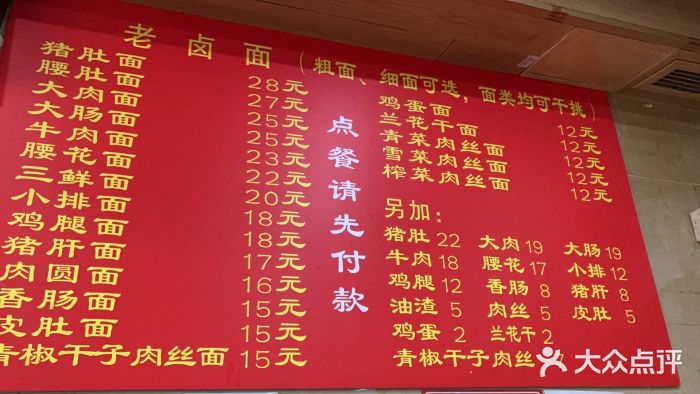 老卤面（粗面、细面可选，面类均可干挑）
猪肚面 28元
腰肚面 27元
大肉面 25元
大肠面 25元
牛肉面 23元
腰花面 22元
三鲜面 20元
小排面 18元
鸡腿面 18元
猪肝面 17元
肉圆面 16元
香肠面 15元
皮肚面 15元
青椒干子肉丝面 15元
点餐请先付款
鸡蛋面 12元
兰花干面 12元
青菜肉丝面 12元
雪菜肉丝面 12元
榨菜肉丝面 12元
另加：
猪肚 22 大肉 19 大肠 19
牛肉 18 腰花 17 小排 12
鸡腿 12 香肠 8 猪肝 8
油渣 5 肉丝 5 皮肚 5
鸡蛋 2 兰花干 2
青椒干子肉丝
大众点评